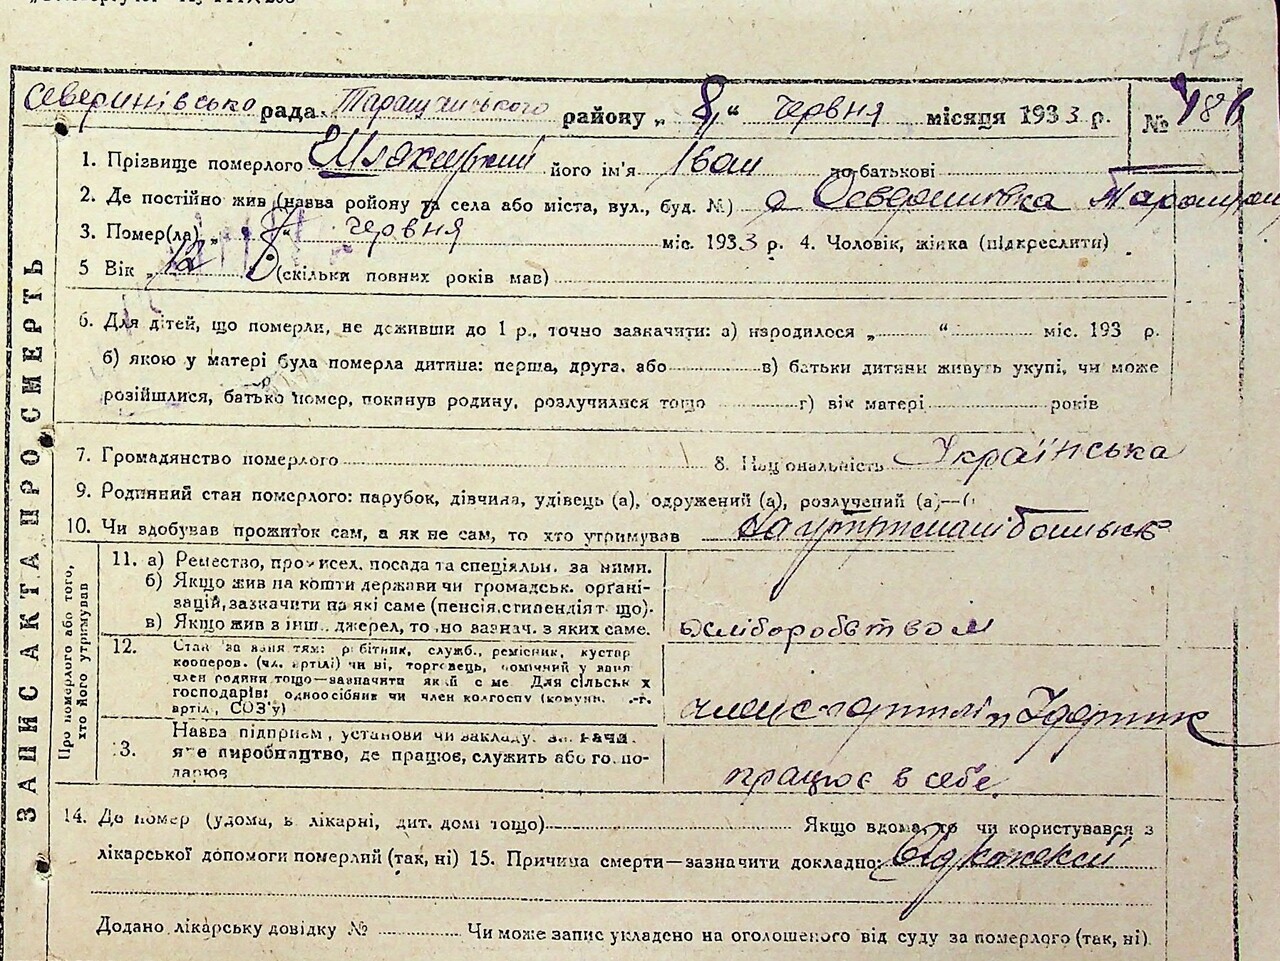 175
Северинівсько рада Таращанського району „ 8 “ червня місяця 1933 р. № 486
1. Прізвище померлого його ім'я Іван по батькові
2. Де постійно жив (назва району та села або міста, вул., буд. №)
3. Помер(ла) „ 8 “ червня міс. 1933 р. 4. Чоловік, жінка (підкреслити)
5 Вік „ (скільки повних років мав)
6. Для дітей, що померли, не доживши до 1 р., точно зазначити: а) народилося „ “ міс. 193 р.
б) якою у матері була померла дитина: перша, друга. або в) батьки дитини живуть укупі, чи може
розійшлися, батько помер, покинув родину, розлучилися тощо г) вік матері років
7. Громадянство померлого 8. Національність Українська
9. Родинний стан померлого: парубок, дівчина, удівець (а), одружений (а), розлучений (а)
10. Чи здобував прожиток сам, а як не сам, то хто утримував
ЗАПИС АКТА ПРО СМЕРТЬ
Про померлого або того, хто його утримував
11. а) Ремество, професія, посада та спеціяльн. за ними.
б) Якщо жив на кошти держави чи громадськ. орґані-
зацій, зазначити на які саме (пенсія, стипендія т що).
в) Якщо жив з інш. джерел, то чно зазнач. з яких саме.
хліборобством
12. Стан за заняттям: робітник, служб., ремісник, кустар
кооперов. (чл. артілі) чи ні, торговець, помічний у заня
член родини тощо—зазначити який саме. Для сільськ х
господарів: одноосібник чи член колгоспу (комуни, с.-г.
артіл, СОЗ'у)
член с г артілі
13. Назва підприєм, установи чи закладу, зазначи
яке виробництво, де працює, служить або го по-
дарює
працює в себе.
14. Де помер (удома, в лікарні, дит. домі тощо) Якщо вдома, то чи користувався з
лікарської допомоги померлий (так, ні) 15. Причина смерти—зазначити докладно: Від
Додано лікарську довідку № Чи може запис укладено на оголошеного від суду за померлого (так, ні)